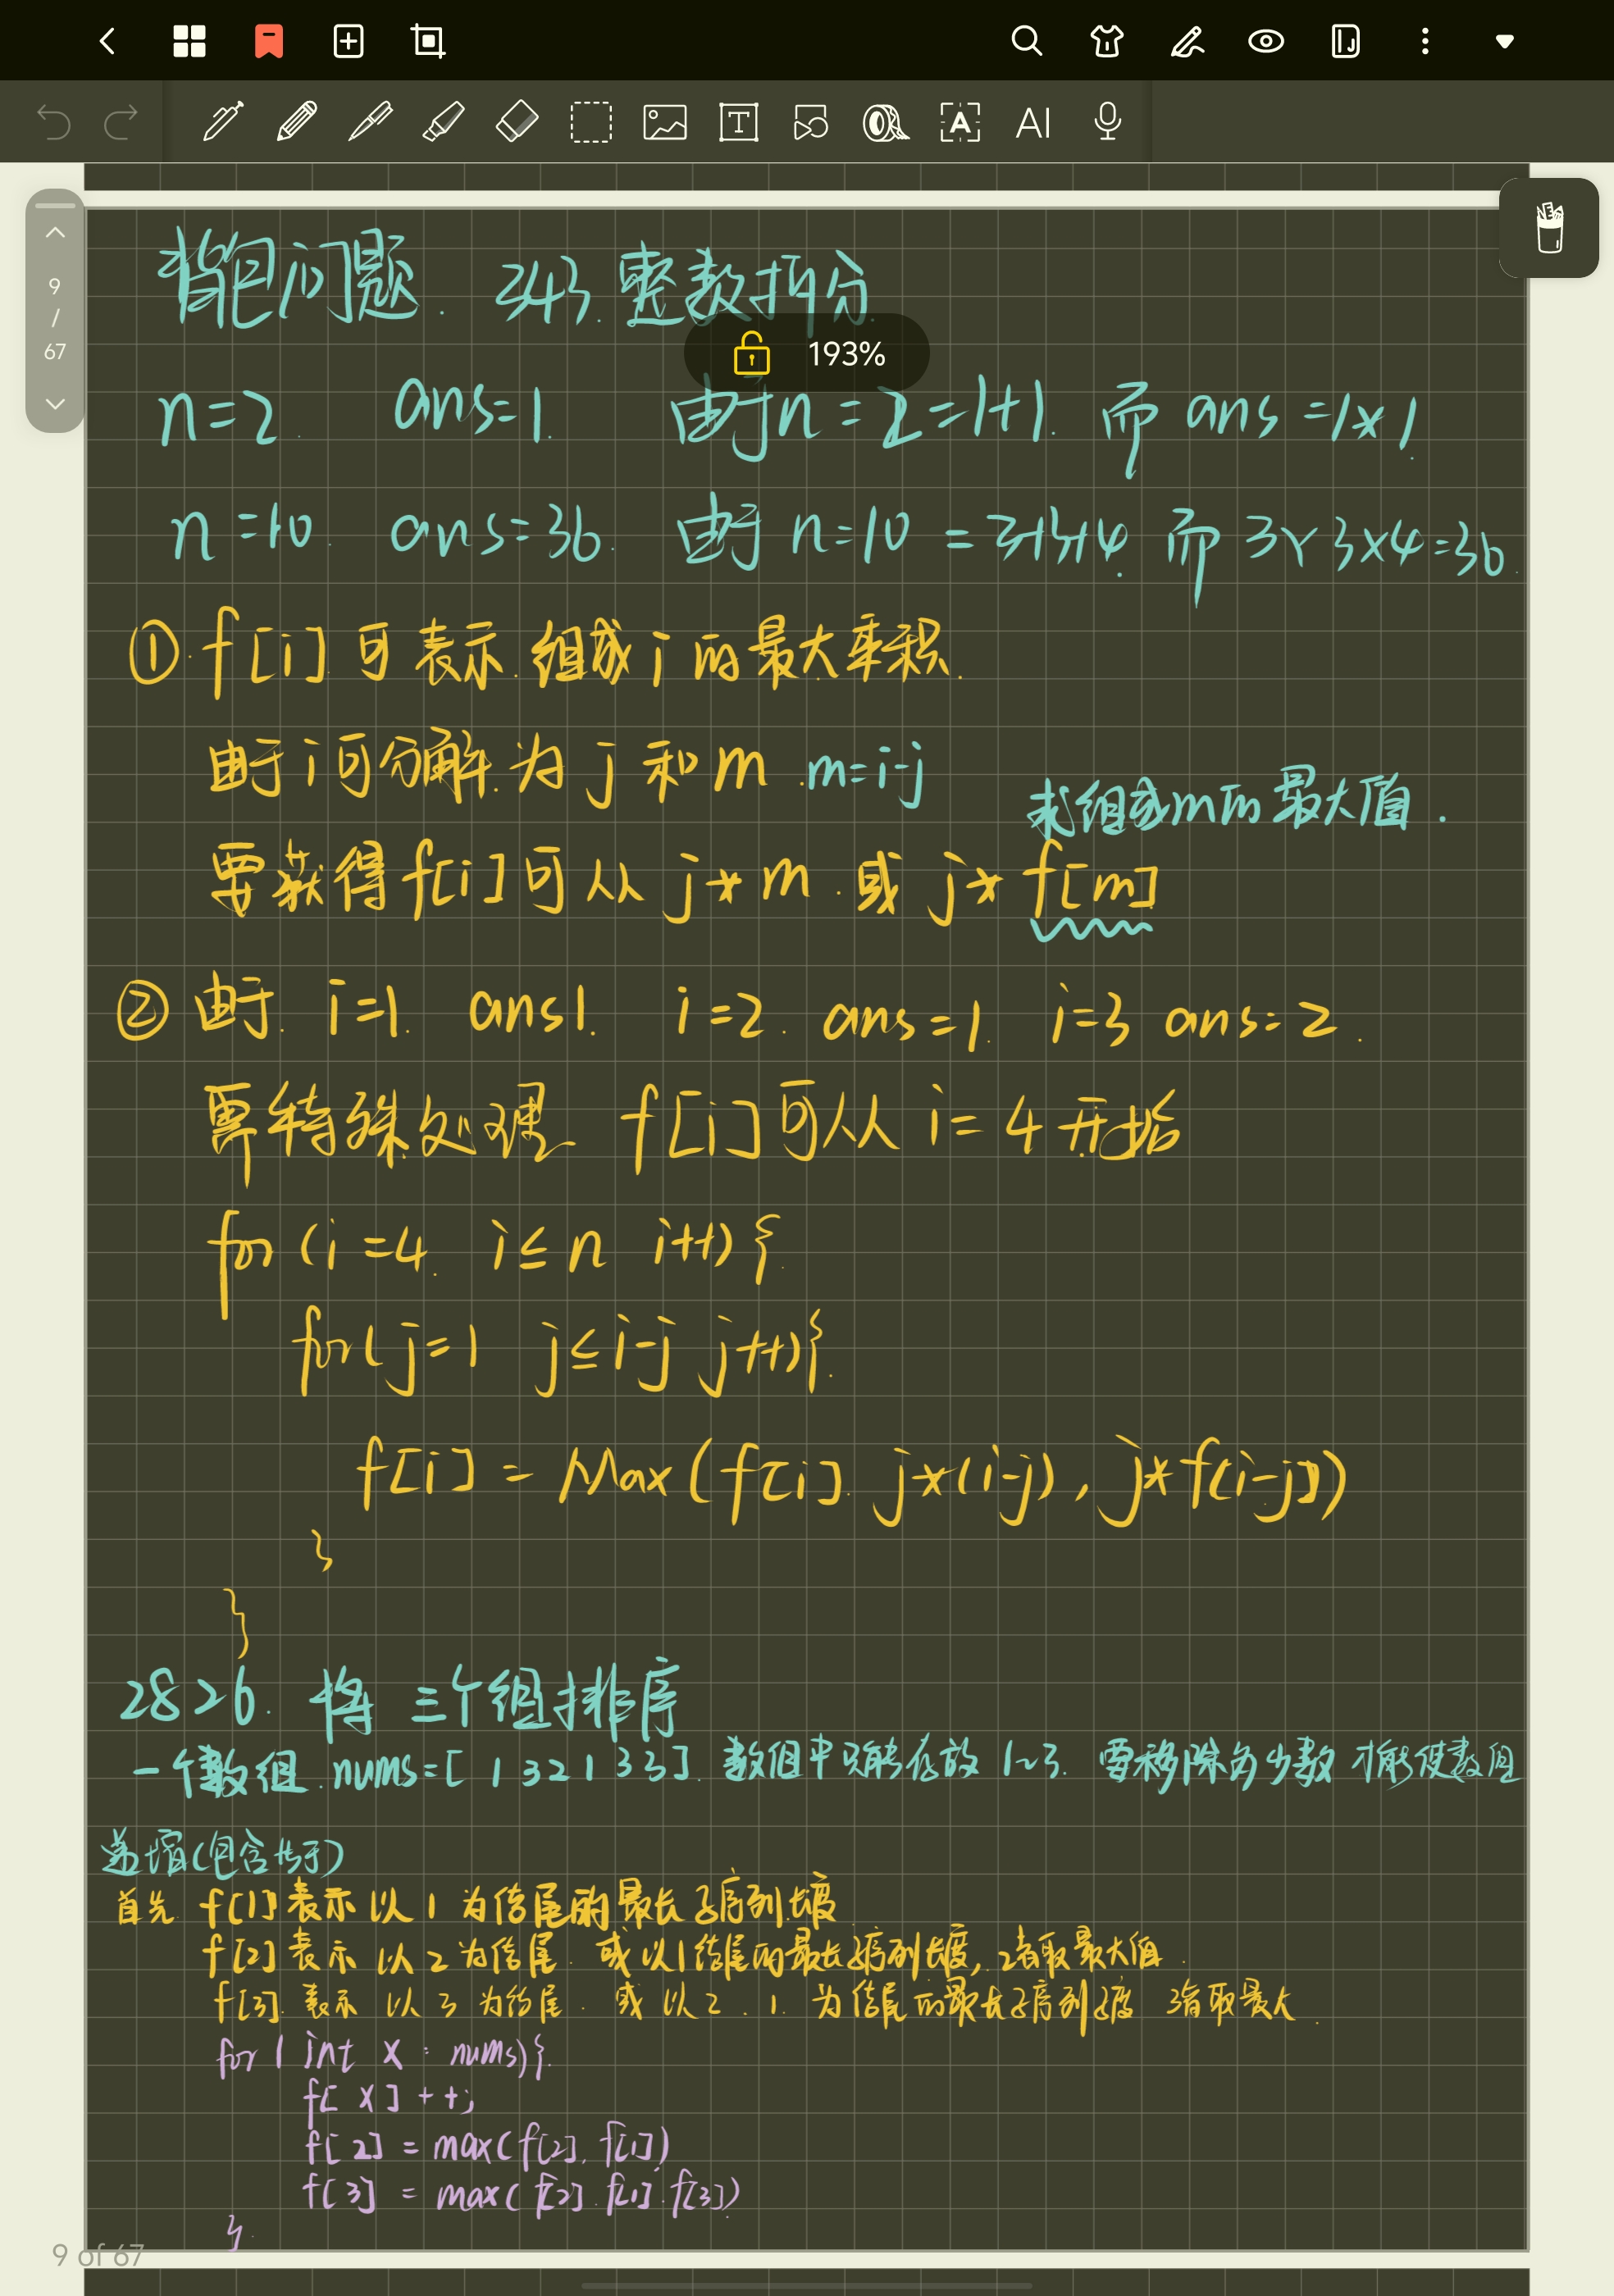 AI
9
/
67
193%
背包问题. 343. 整数拆分.
n=2. ans=1. 由于n=2=1+1. 而 ans=1*1.
n=10. ans=36. 由于 n=10 = 3+3+4. 而 3×3×4=36.
①.f[i] 可表示.组成 i 的最大乘积.
由于 i 可分解.为 j 和 m .m=i-j
求组成m的最大值.
要获得 f[i] 可从 j*m.或 j* f[m]
② 由于. i=1. ans1. i=2. ans=1. i=3 ans=2.
需特殊处理. f[i]可从 i=4 开始
for (i=4. i≤n i++){.
for( j=1 j≤i-j j++){.
f[i] = Max(f[i]. j*(i-j), j*f[i-j])
}
}
2826. 将 三个组排序
一个数组.nums=[ 1 3 2 1 3 3]. 数组中只能存放 1~3. 要移除多少数 才能使数组
递增(包含等于)
首先 f[1] 表示 以 1 为结尾的最长子序列长度
f[2] 表示 以 2 为结尾. 或以1结尾的最长子序列长度, 2者取最大值.
f[3]. 表示 以 3 为结尾. 或 以 2 . 1. 为结尾的最长子序列长度 3者取最大.
for ( int x : nums){.
f[ x] ++;
f[ 2] = max(f[2], f[1])
f[ 3] = max( f[2] . f[1] . f[3])
}.
9 of 67